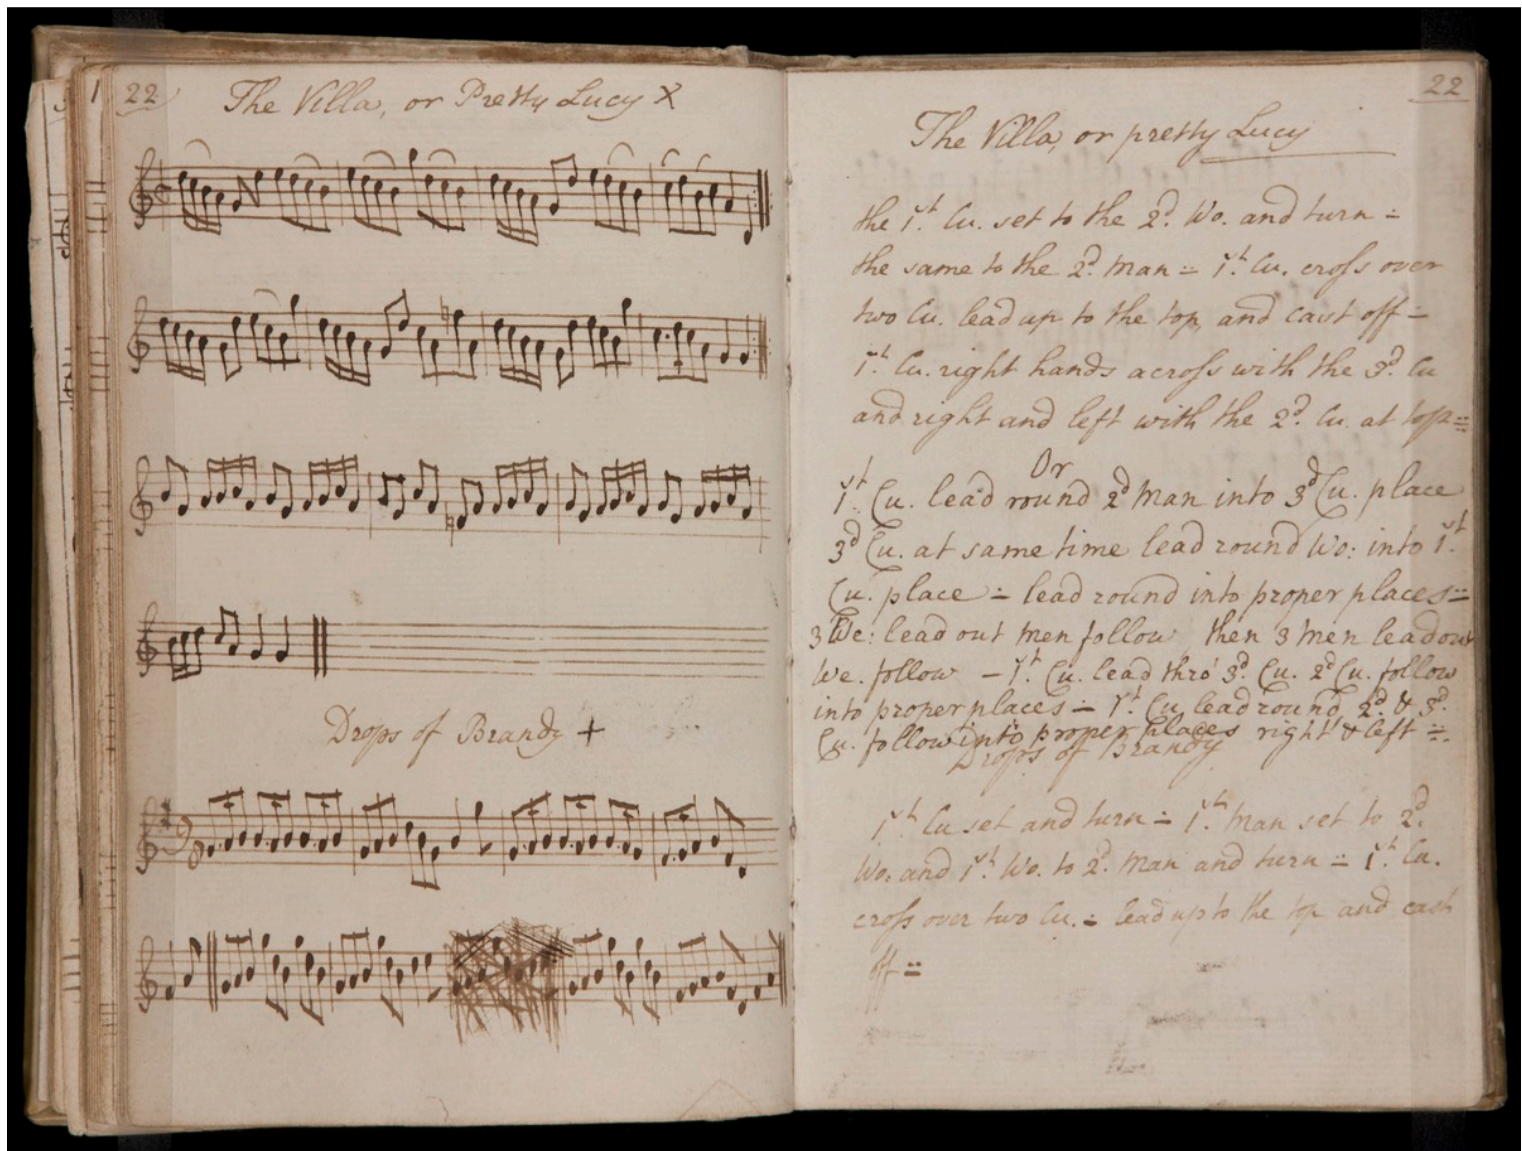 22
The Villa, or Pretty Lucy X
Drops of Brandy +
22
The Villa, or pretty Lucy
the 1.st Cu. set to the 2.d Wo. and turn =
the same to the 2.d Man = 1.st Cu. cross over
two Cu. lead up to the top, and cast off =
1.st Cu. right hands across with the 3.d Cu
and right and left with the 2.d Cu. at top =
Or
1.st Cu. lead round 2d Man into 3d Cu. place
3d Cu. at same time lead round Wo: into 1.st
Cu. place = lead round into proper places =
3 We: lead out Men follow then 3 Men lead out
We. follow – 1.st Cu. lead thro' 3.d Cu. 2d Cu. follow
into proper places = 1.st Cu. lead round 2.d & 3.d
Cu. follow into proper places right & left =
Drops of Brandy
1.st Cu set and turn = 1.st Man set to 2.d
Wo. and 1.st Wo. to 2.d Man and turn = 1.st Cu.
cross over two Cu. = lead up to the top and cast
off =